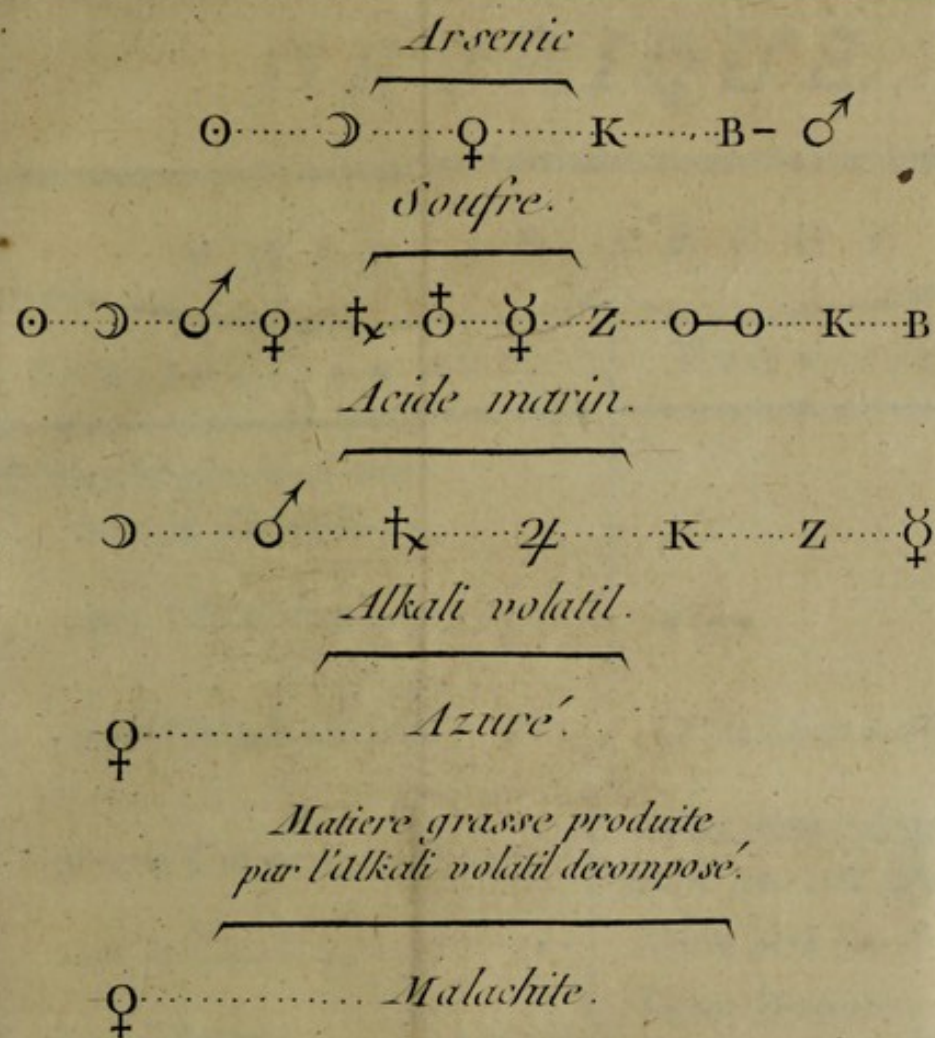 Arsenic
☉······☽······♀······K······B– ♂
Soufre.
☉···☽···♂···♀···♄···♁···☿···Z···O—O···K···B
Acide marin.
☽······♂······♄······♃······K······Z······☿
Alkali volatil.
♀·············· Azuré.
Matiere grasse produite
par l'Alkali volatil decomposé.
♀·············· Malachite.